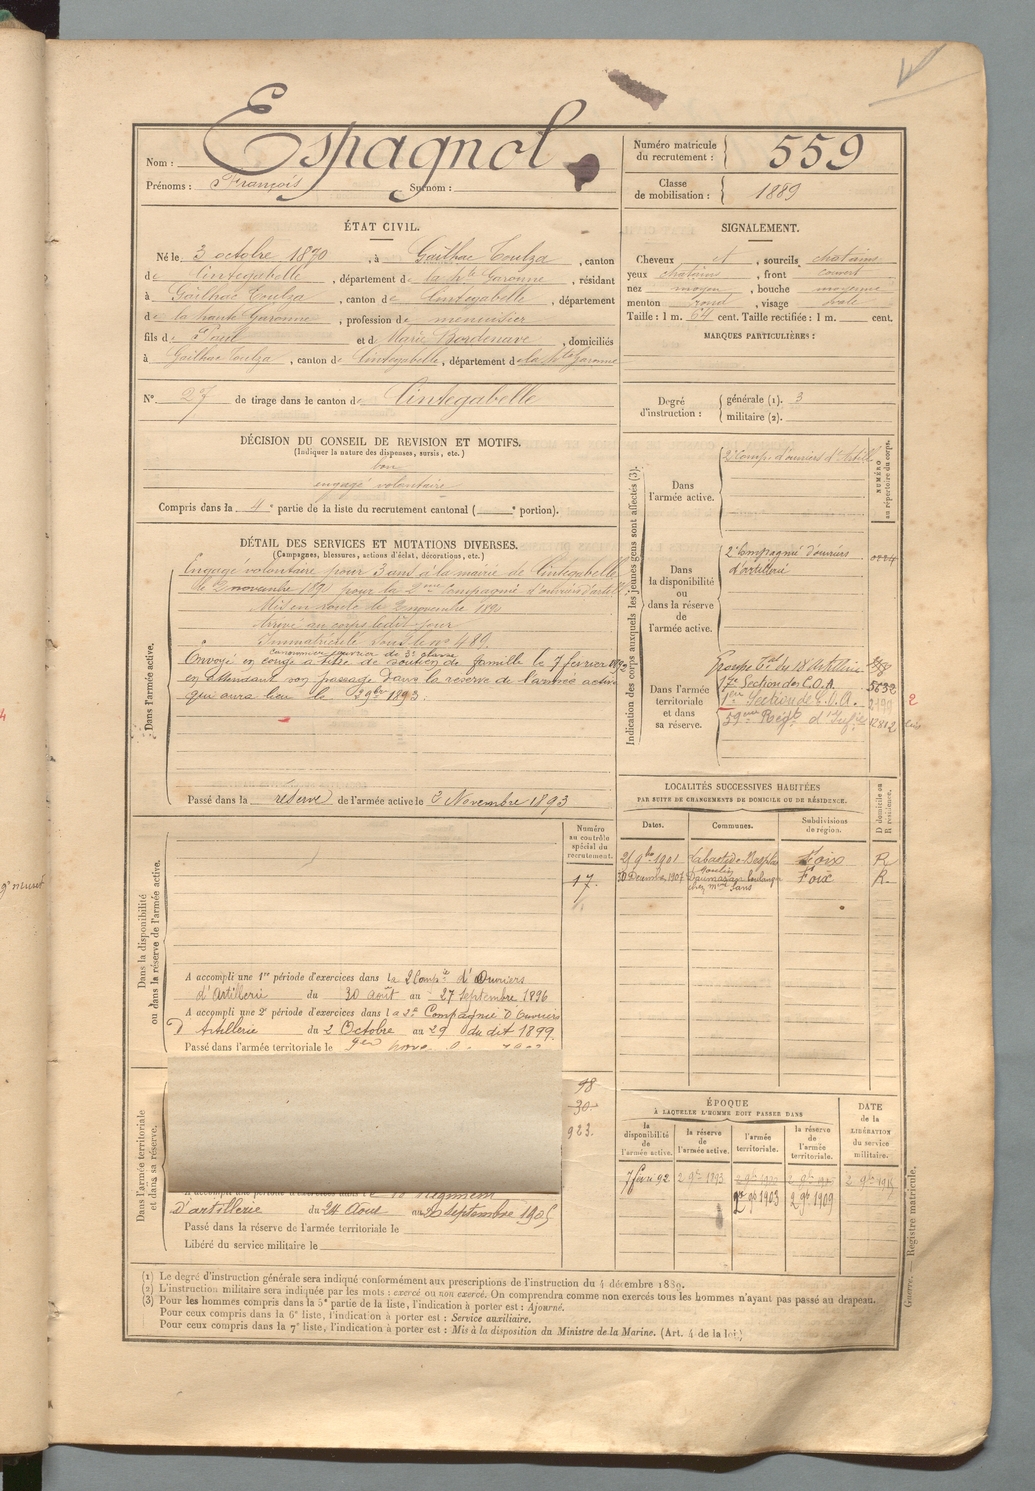 Nom : Espagnol
Prénoms : François Surnom :
Numéro matricule du recrutement : 559
Classe de mobilisation : 1889
ÉTAT CIVIL.
Né le 3 octobre 1870, à Gailhac Toulza, canton
de Cintegabelle, département de la Hte Garonne, résidant
à Gailhac Toulza, canton de Cintegabelle, département
de la haute Garonne, profession de menuisier
fils de Paul et de Marie Bordenave, domiciliés
à Gailhac Toulza, canton de Cintegabelle, département de la Hte Garonne
N° 27 de tirage dans le canton de Cintegabelle
SIGNALEMENT.
Cheveux et, sourcils chatains
yeux chatains, front couvert
nez moyen, bouche moyenne
menton rond, visage ovale
Taille : 1 m. 64 cent. Taille rectifiée : 1 m. cent.
MARQUES PARTICULIÈRES :
Degré d'instruction : générale (1). 3
militaire (2).
DÉCISION DU CONSEIL DE REVISION ET MOTIFS.
(Indiquer la nature des dispenses, sursis, etc.)
bon
engagé volontaire
Compris dans la 4e partie de la liste du recrutement cantonal ( e portion).
DÉTAIL DES SERVICES ET MUTATIONS DIVERSES.
(Campagnes, blessures, actions d'éclat, décorations, etc.)
Dans l'armée active.
Engagé volontaire pour 3 ans à la mairie de Cintegabelle
le 2 novembre 1890 pour la 2ème Compagnie d'ouvriers d'artill
Mis en route le 2 novembre 1890
Arrivé au corps le dit jour
Immatriculé sous le no 489.
canonnier ouvrier de 3e classe
Envoyé en congé à titre de soutien de famille le 7 février 1892
en attendant son passage dans la réserve de l'armée active
qui aura lieu le 3 9bre 1893.
Passé dans la réserve de l'armée active le 3 Novembre 1893
Indication des corps auxquels les jeunes gens sont affectés (3).
NUMÉRO au répertoire du corps.
Dans l'armée active.
2e Comp. d'ouvriers d'Artill
Dans la disponibilité ou dans la réserve de l'armée active.
2e Compagnie d'ouvriers
d'artillerie
Dans l'armée territoriale et dans sa réserve.
Groupe tal du 18 Artillerie
17e Section de C.O.A. 5632
1ère Section de C.O.A. 2199
59ème Régt d'Inf 12812
2
LOCALITÉS SUCCESSIVES HABITÉES
PAR SUITE DE CHANGEMENTS DE DOMICILE OU DE RÉSIDENCE.
Dates. Communes. Subdivisions de région. D domicile ou R résidence.
21 9bre 1901 Labastide-Besplas Foix R
30 Décembre 1907 Foix R
Dans la disponibilité ou dans la réserve de l'armée active.
Numéro au contrôle spécial du recrutement.
17.
A accompli une 1re période d'exercices dans la 2 Compie d'Ouvriers
d'Artillerie du 30 août au 27 septembre 1896
A accompli une 2e période d'exercices dans la 2e Compagnie d'Ouvriers
D'Artillerie du 2 Octobre au 29 du dit 1899.
Passé dans l'armée territoriale le
Dans l'armée territoriale et dans sa réserve.
98
30
923.
D'artillerie du 24 Août au septembre 1905
Passé dans la réserve de l'armée territoriale le
Libéré du service militaire le
ÉPOQUE
À LAQUELLE L'HOMME DOIT PASSER DANS
la disponibilité de l'armée active. la réserve de l'armée active. l'armée territoriale. la réserve de l'armée territoriale.
DATE de la LIBÉRATION du service militaire.
7 févri 92 2 9bre 1893
9bre 1903 2 9bre 1909
(1) Le degré d'instruction générale sera indiqué conformément aux prescriptions de l'instruction du 4 décembre 1889.
(2) L'instruction militaire sera indiquée par les mots : exercé ou non exercé. On comprendra comme non exercés tous les hommes n'ayant pas passé au drapeau.
(3) Pour les hommes compris dans la 5e partie de la liste, l'indication à porter est : Ajourné.
Pour ceux compris dans la 6e liste, l'indication à porter est : Service auxiliaire.
Pour ceux compris dans la 7e liste, l'indication à porter est : Mis à la disposition du Ministre de la Marine. (Art. 4 de la loi.)
Guerre. — Registre matricule.